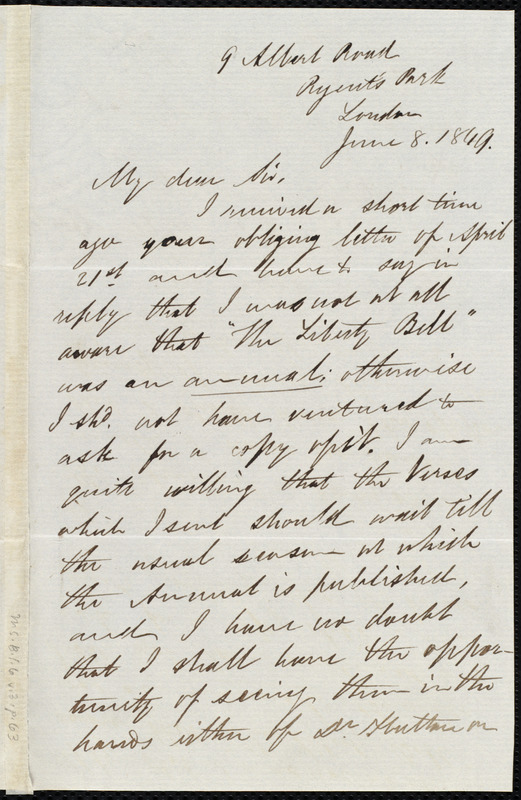 9 Albert Road
Regent's Park
London
June 8. 1849.
My dear Sir,
I received a short time
ago your obliging letter of April
21st and have to say in
reply that I was not at all
aware that "The Liberty Bell"
was an annual; otherwise
I shd. not have ventured to
ask for a copy of it. I am
quite willing that the Verses
which I sent should wait till
the usual season at which
the Annual is published,
and I have no doubt
that I shall have the oppor-
tunity of seeing them in the
hands either of Dr. Hutton or
Ms.B.1.6 v.3, p.63